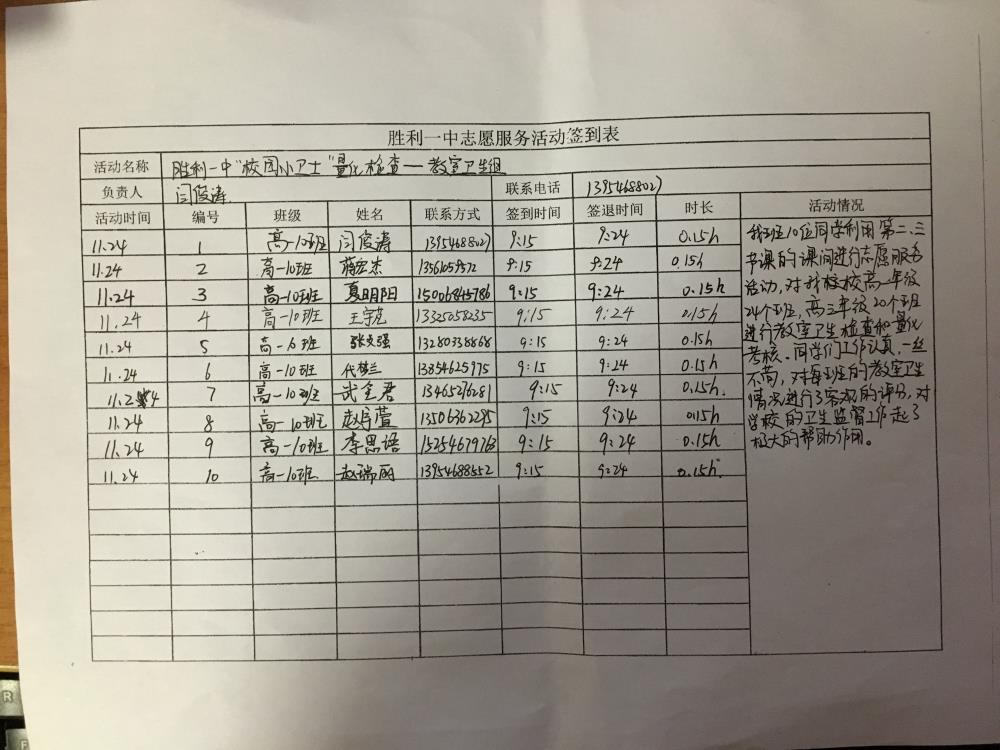 胜利一中志愿服务活动签到表
活动名称 胜利一中“校园小卫士”量化检查—教室卫生组
负责人 闫俊涛 联系电话 13954688027
活动时间 编号 班级 姓名 联系方式 签到时间 签退时间 时长 活动情况
11.24 1 高一10班 闫俊涛 13954688027 9:15 9:24 0.15h
11.24 2 高一10班 蒋宏杰 9:15 9:24 0.15h
11.24 3 高一10班 夏明阳 15006845786 9:15 9:24 0.15h
11.24 4 高一10班 王宇尧 13325058235 9:15 9:24 0.15h
11.24 5 高一10班 张文强 13280338868 9:15 9:24 0.15h
11.24 6 高一10班 代梦兰 13854625975 9:15 9:24 0.15h
11.24 7 高一10班 武金君 13465276281 9:15 9:24 0.15h.
11.24 8 高一10班 赵婷萱 13506362295 9:15 9:24 0.15h
11.24 9 高一10班 李思语 15254679763 9:15 9:24 0.15h
11.24 10 高一10班 赵瑞丽 13954688552 9:15 9:24 0.15h
我班10位同学利用第二、三
节课的课间进行志愿服务
活动,对我校高一年级
24个班,高三年级20个班
进行教室卫生检查和量化
考核。同学们工作认真,一丝
不苟,对每班的教室卫生
情况进行了客观的评分,对
学校的卫生监督工作起了
极大的帮助作用。
R
F